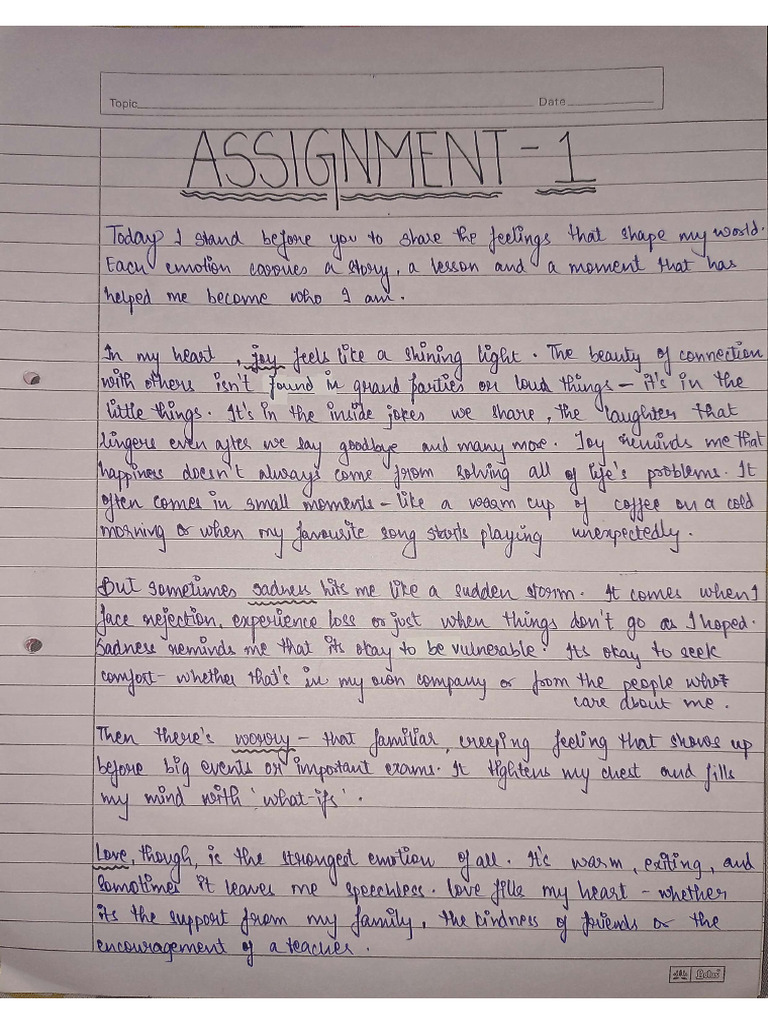 Topic Date
ASSIGNMENT - 1
Today I stand before you to share the feelings that shape my world.
Each emotion carries a story, a lesson and a moment that has
helped me become who I am.
In my heart, joy feels like a shining light. The beauty of connection
with others isn't found in grand parties or loud things - it's in the
little things. It's in the inside jokes we share, the laughter that
lingers even after we say goodbye and many more. Joy reminds me that
happiness doesn't always come from solving all of life's problems. It
often comes in small moments - like a warm cup of coffee on a cold
morning or when my favourite song starts playing unexpectedly.
But sometimes sadness hits me like a sudden storm. It comes when I
face rejection, experience loss or just when things don't go as I hoped.
Sadness reminds me that its okay to be vulnerable. Its okay to seek
comfort - whether that's in my own company or from the people who
care about me.
Then there's worry - that familiar, creeping feeling that shows up
before big events or important exams. It tightens my chest and fills
my mind with 'what-ifs'.
Love, though, is the strongest emotion of all. It's warm, exiting, and
somotimes it leaves me speechless. Love fills my heart - whether
its the support from my family, the kindness of friends or the
encouragement of a teacher.